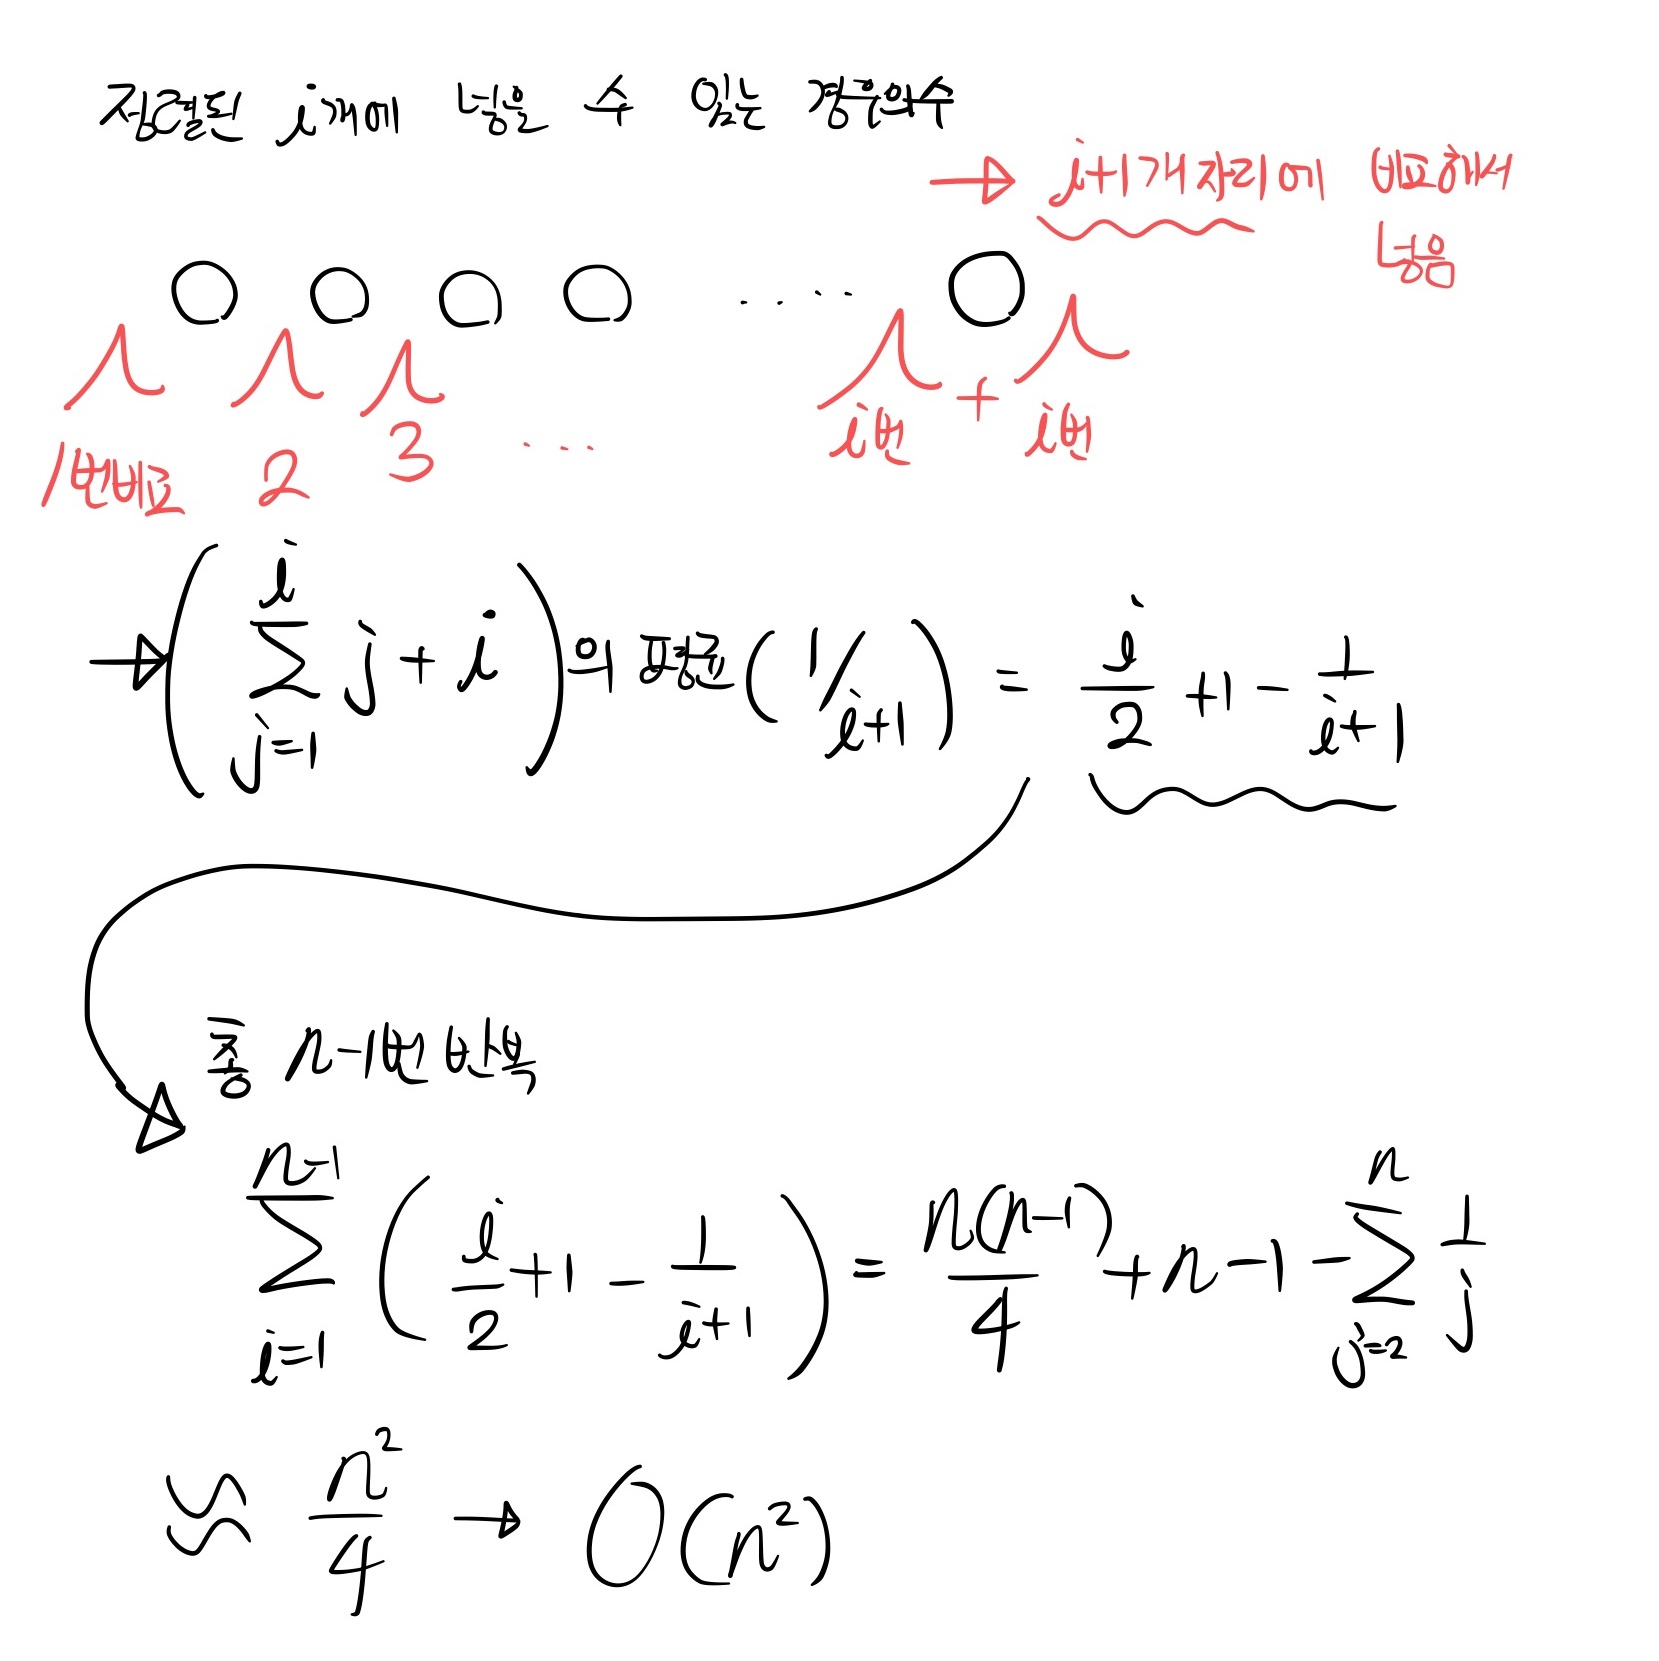 정렬된 i개에 넣을 수 있는 경우의수
→ i+1개 자리에 비교해서
넣음
....
1번비교 2 3 ... i번 + i번
→ ( i∑j=1 j + i )의 평균 ( 1/i+1 ) = i/2 + 1 - 1/i+1
총 n-1번 반복
n-1∑i=1 ( i/2 + 1 - 1/i+1 ) = n(n-1)/4 + n - 1 - n∑j=2 1/j
≈ n²/4 → O(n²)